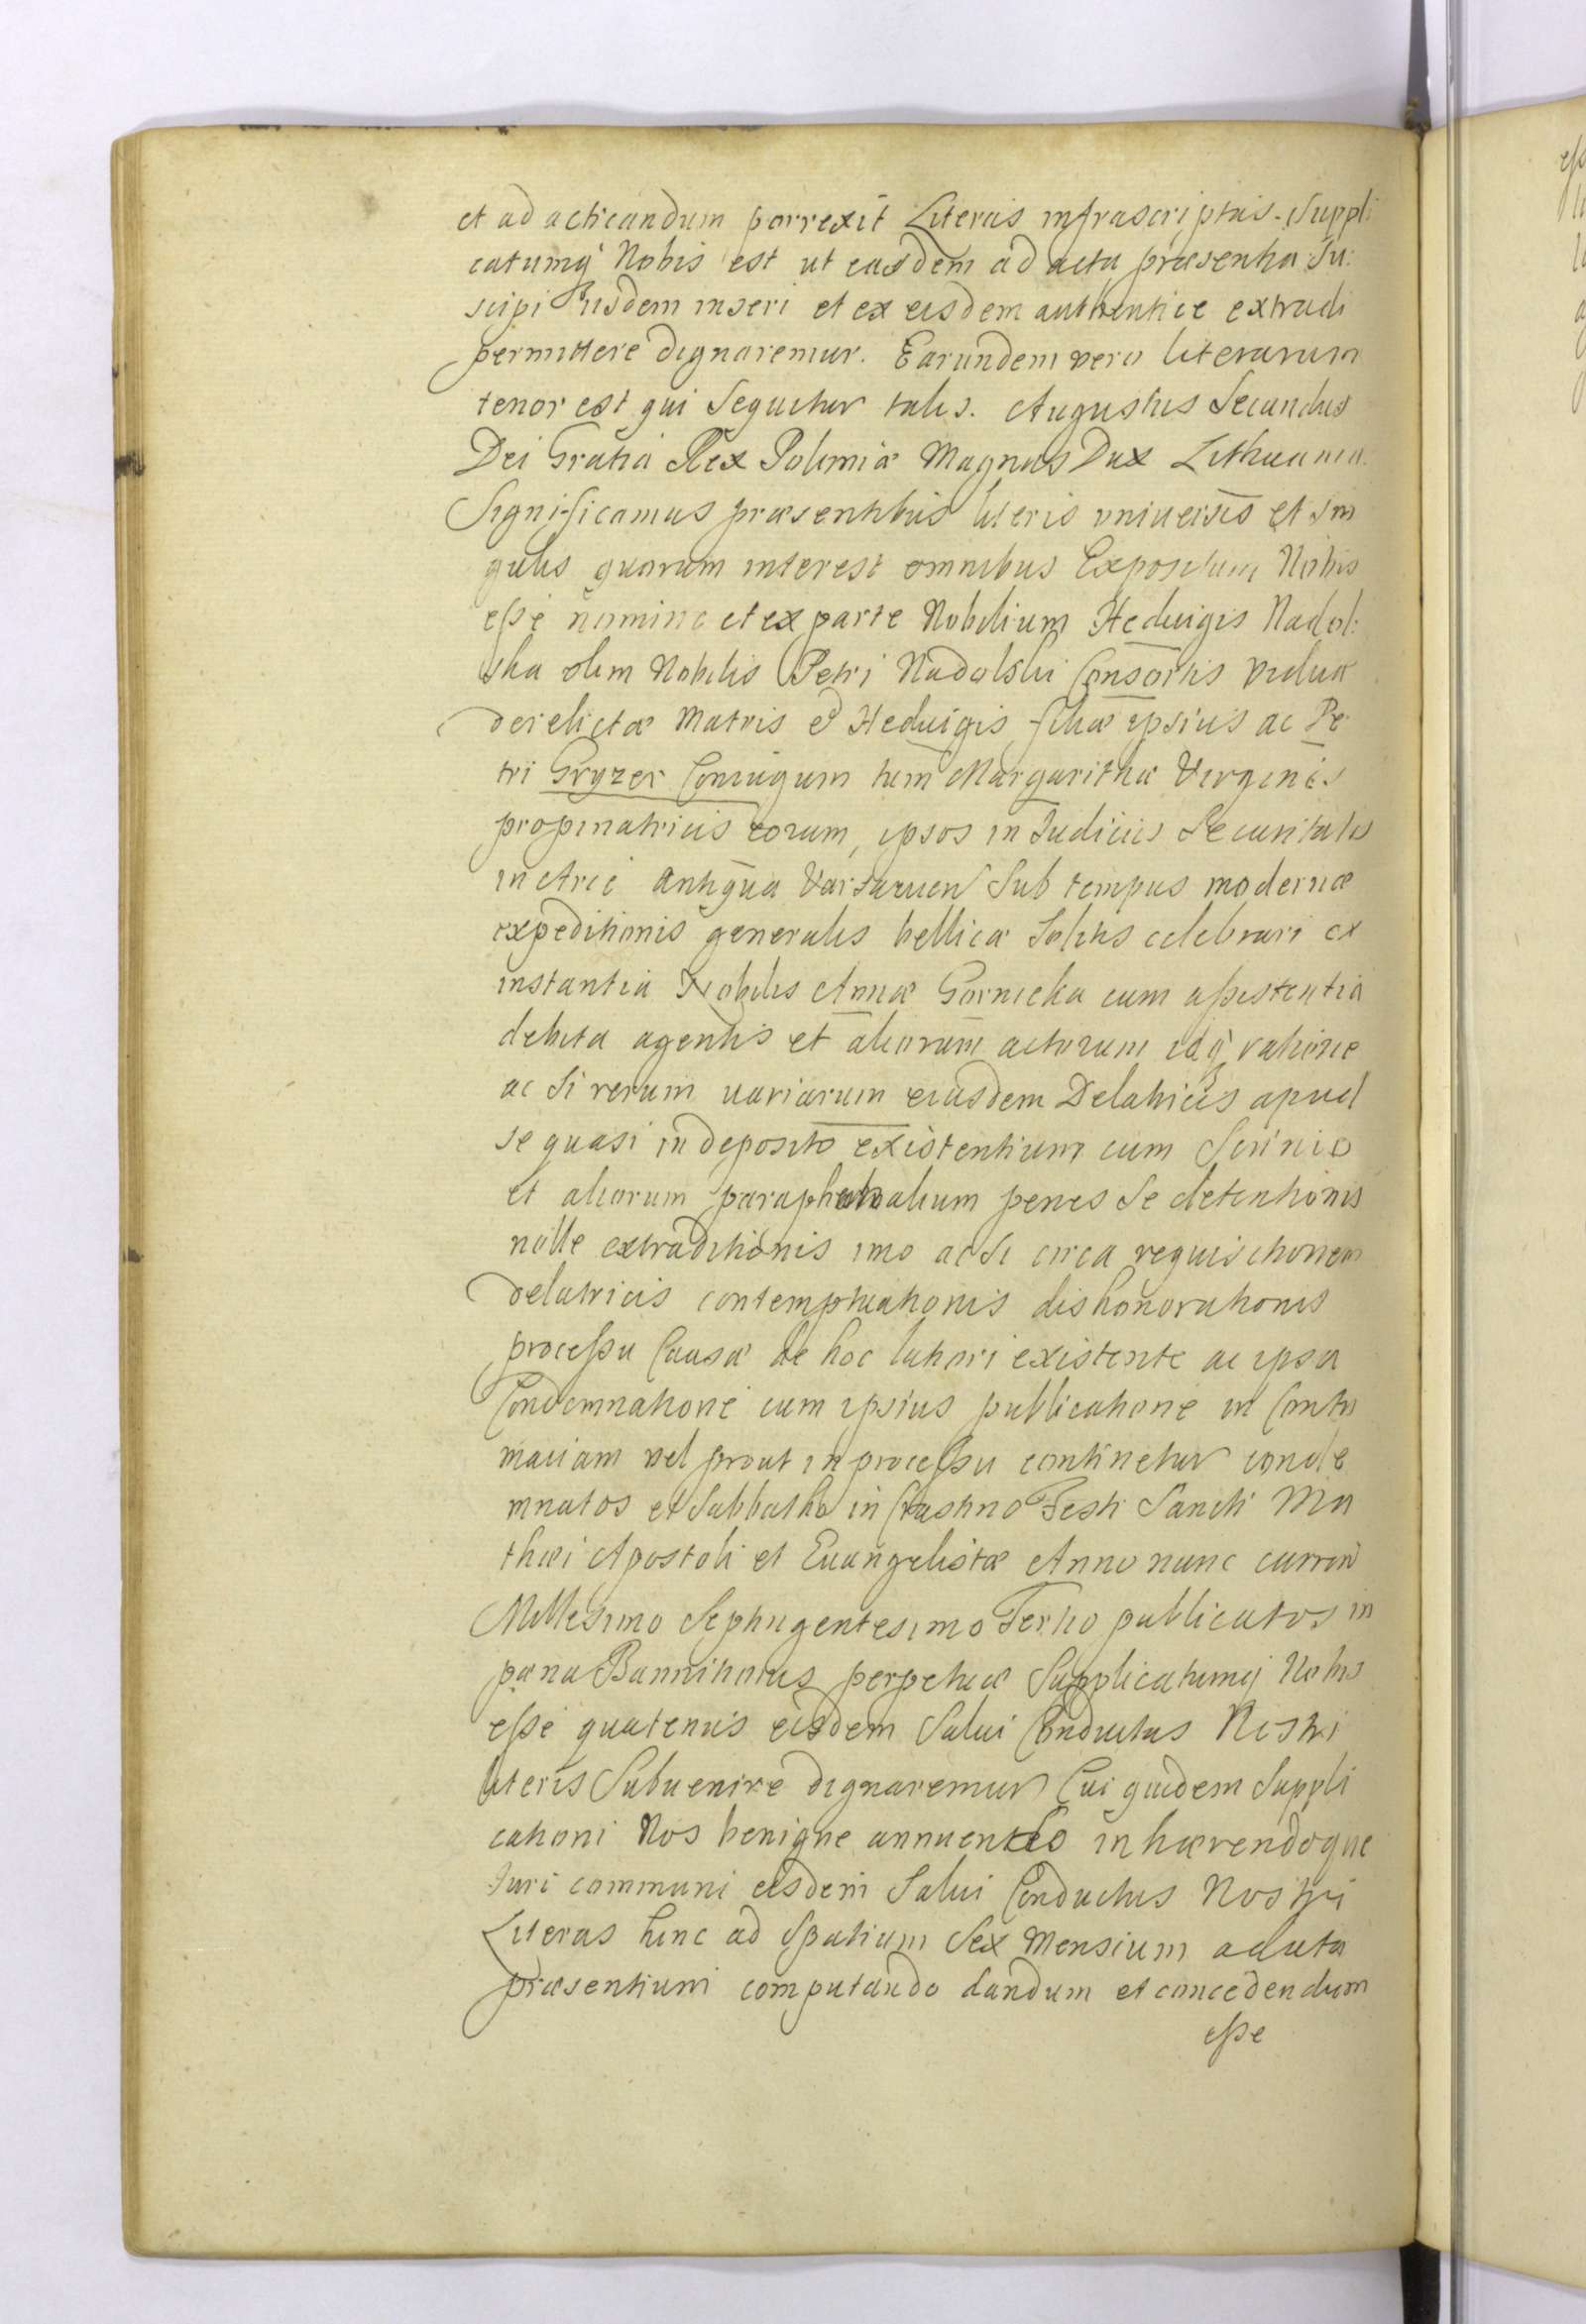 et ad acticandum porrexit Literas infrascriptas. Suppli
catumq Nobis est ut easdem ad acta præsentia Su:
scipi iisdem inseri et ex eisdem authentice extradi
permittere dignaremur. Earundem vero literarum
tenor est qui Sequitur talis. Augustus Secundus
Dei Gratia Rex Poloniæ Magnus Dux Lithuaniæ
Significamus præsentibus literis vniuersis et sin
gulis quorum interest omnibus Expositum Nobis
esse nomine et ex parte Nobilium Heduigis Nadol:
ska olim Nobilis Petri Nadolski Consortis viduæ
derelictæ Matris et Heduigis filiæ ipsius ac Pe
tri Gryzer Coniugum tum Margarithæ Virginis
propinatricis eorum, ipsos in Iudiciis Securitatis
in Arce antiqua Varsauien Sub tempus modernæ
expeditionis generalis bellicæ Solitis celebrari ex
instantia Nobilis Annæ Gornicka cum assistentia
debita agentis et aliorum actorum idq ratione
ac Si rerum uariarum eiusdem Delatricis apud
se quasi in deposito existentium cum Scrinio
et aliorum paraphernalium penes Se detentionis
nolle extraditionis imo ac Si circa requisitionem
delatricis contemptuationis dishonorationis
processu Causæ de hoc latiori existente ac ipsa
Condemnatione cum ipsius publicatione in Contu
maciam vel prout in processu continetur conde
mnatos et Sabbatho in Crastino Festi Sancti Ma
thæi Apostoli et Euangelistæ Anno nunc curren
Millesimo Septingentesimo Tertio publicatos in
pæna Bannitionis perpetuæ Supplicatumq Nobis
esse quatenus eisdem Salui Conductus Nostri
literis Subuenire dignaremur Cui quidem Suppli
cationi Nos benigne annuendo inhærendoque
Iuri communi eisdem Salui Conductus Nostri
Literas hinc ad Spatium Sex Mensium a data
præsentium computando dandum et concedendum
esse